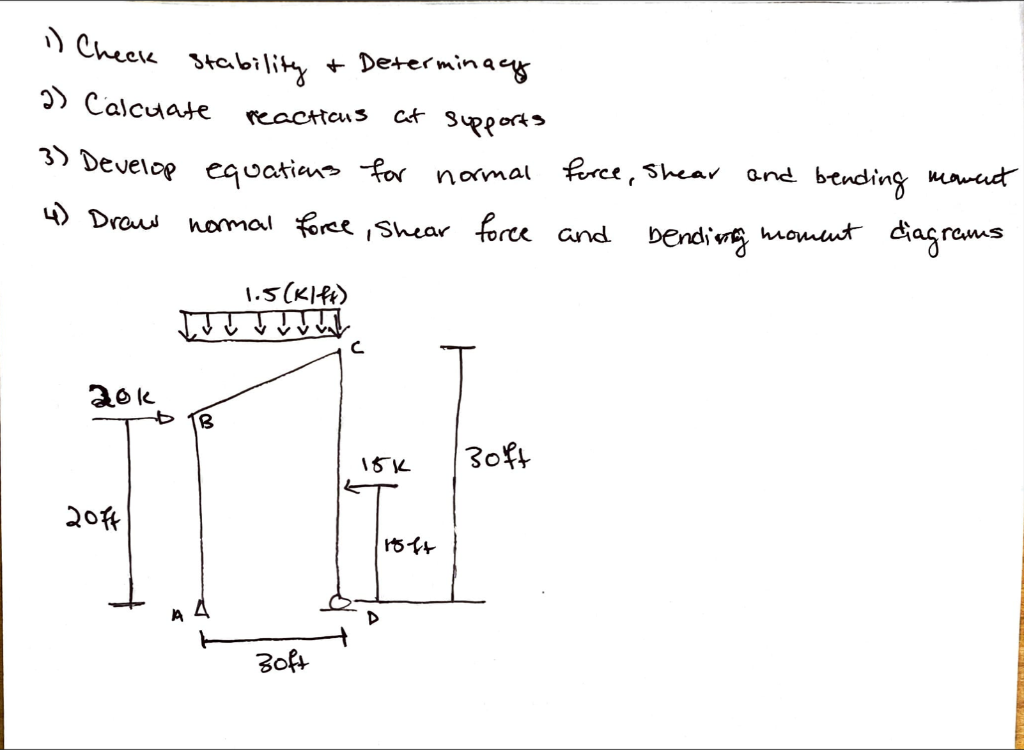 1) Check Stability + Determinacy
2) Calculate reactions at supports
3) Develop equations for normal force, shear and bending moment
4) Draw normal force, shear force and bending moment diagrams
1.5 (K/ft)
C
20K
B
15K
30ft
20ft
15ft
A
D
30ft